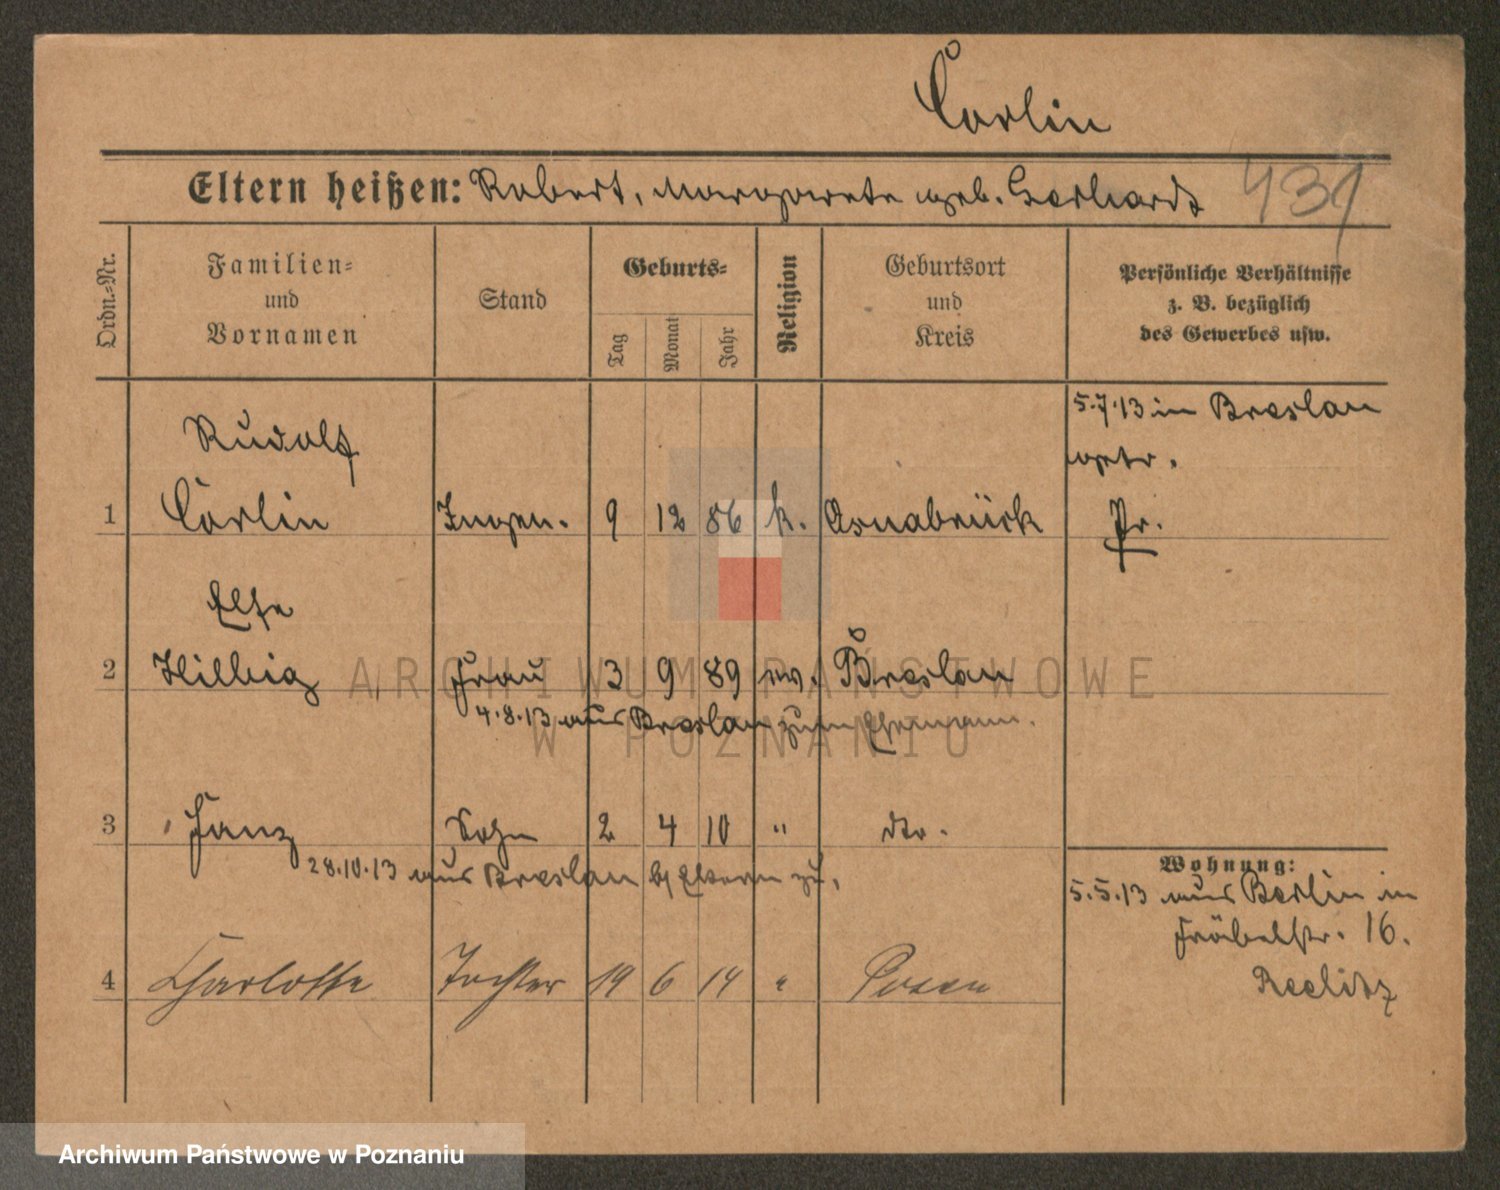 Corlin
Eltern heißen: Robert, Margarete geb. Gerhards 431
Ordn.-Nr.
Familien-
und
Vornamen
Stand
Geburts-
Tag
Monat
Jahr
Religion
Geburtsort
und
Kreis
Persönliche Verhältnisse
z. B. bezüglich
des Gewerbes usw.
5.7.13 in Breslau
getr.
Rudolf
1 Corlin Ingen. 9 12 86 k. Osnabrück Pr.
Else
2 Hilbig Frau 3 9 89 ev. Breslau
4.8.13 aus Breslau zum Ehemann.
3 Hanz Sohn 2 4 10 " dto.
28.10.13 aus Breslau b/ Eltern zu.
Wohnung:
5.5.13 aus Berlin in
Fröbelstr. 16.
4 Charlotte Tochter 19 6 14 " Posen
ARCHIWUM PAŃSTWOWE
W POZNANIU
Archiwum Państwowe w Poznaniu